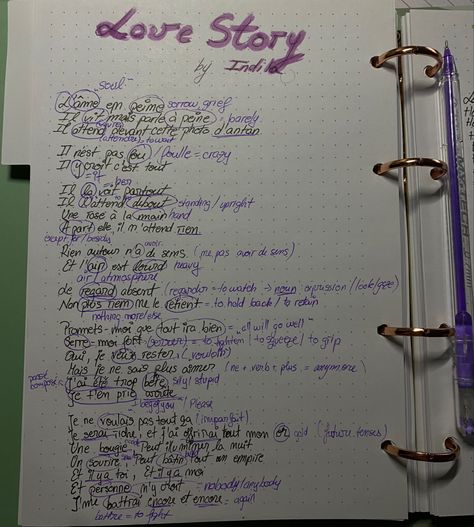 Love Story
by Indila
"soul"
L'âme em peine sorrow, grief
Il vit mais parle à peine = barely
Il attend devant cette photo d'antan
(attendre) to wait
Il n'est pas fou / foulle = crazy
Il y croit c'est tout
= it
her
Il la voit partout
Il l'attend debout standing / upright
Une rose à la main hand
A part elle, il n'attend rien
except for / besides
avoir
Rien autour n'a de sens (ne pas avoir de sens)
Et l'air est lourd heavy
air / atmosphere
Le regard absent (regarder = to watch → noun expression / look / gaze)
Non plus rien ne le retient = to hold back / to retain
nothing more/else
Promets-moi que tout ira bien = "all will go well"
Serre-moi fort (serrer) = to tighten / to squeeze / to grip
Oui, je veux rester (vouloir)
Mais je ne sais plus aimer (ne + verb + plus = anymore)
passé composé
J'ai été trop bête silly / stupid
Je t'en prie, arrête
I beg of you / Please
Je ne voulais pas tout ça (imparfait)
Je serai riche, et j'ai offrirai tout mon or gold (future tenses)
Une bougie Peut illuminer la nuit
Un sourire Peut bâtir tout un empire
Et il y a toi, Et il y a moi
Et personne n'y croit = nobody/anybody
J'me battrai encore et encore = again
battre = to fight